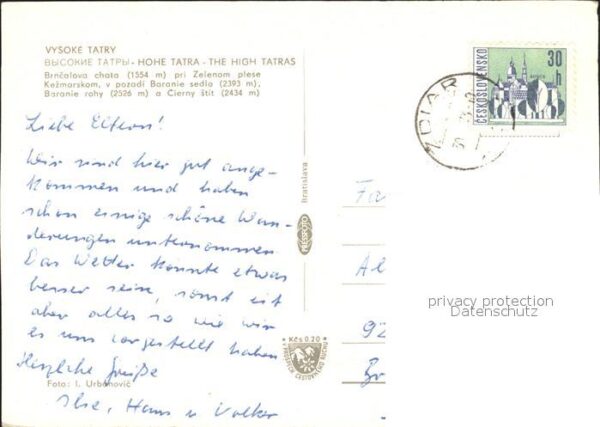 VYSOKÉ TATRY
ВЫСОКИЕ ТАТРЫ - HOHE TATRA - THE HIGH TATRAS
Brnčalova chata (1554 m) pri Zelenom plese
Kežmarskom, v pozadí Baranie sedlo (2393 m);
Baranie rohy (2526 m) a Čierny štít (2434 m)
Liebe Eltern!
Wir sind hier gut ange-
kommen und haben
schon einige schöne Wan-
derungen unternommen
Das Wetter könnte etwas
besser sein, sonst ist
aber alles so wie wir
es uns vorgestellt haben
Herzliche Grüße
Ilse, Hans u Volker
Foto: I. Urbanovič
Bratislava
PRESSFOTO
Kčs 0,20
ČESKOSLOVENSKO
30
h
ŽDIAR
Fa
Al
92
Br
privacy protection
Datenschutz